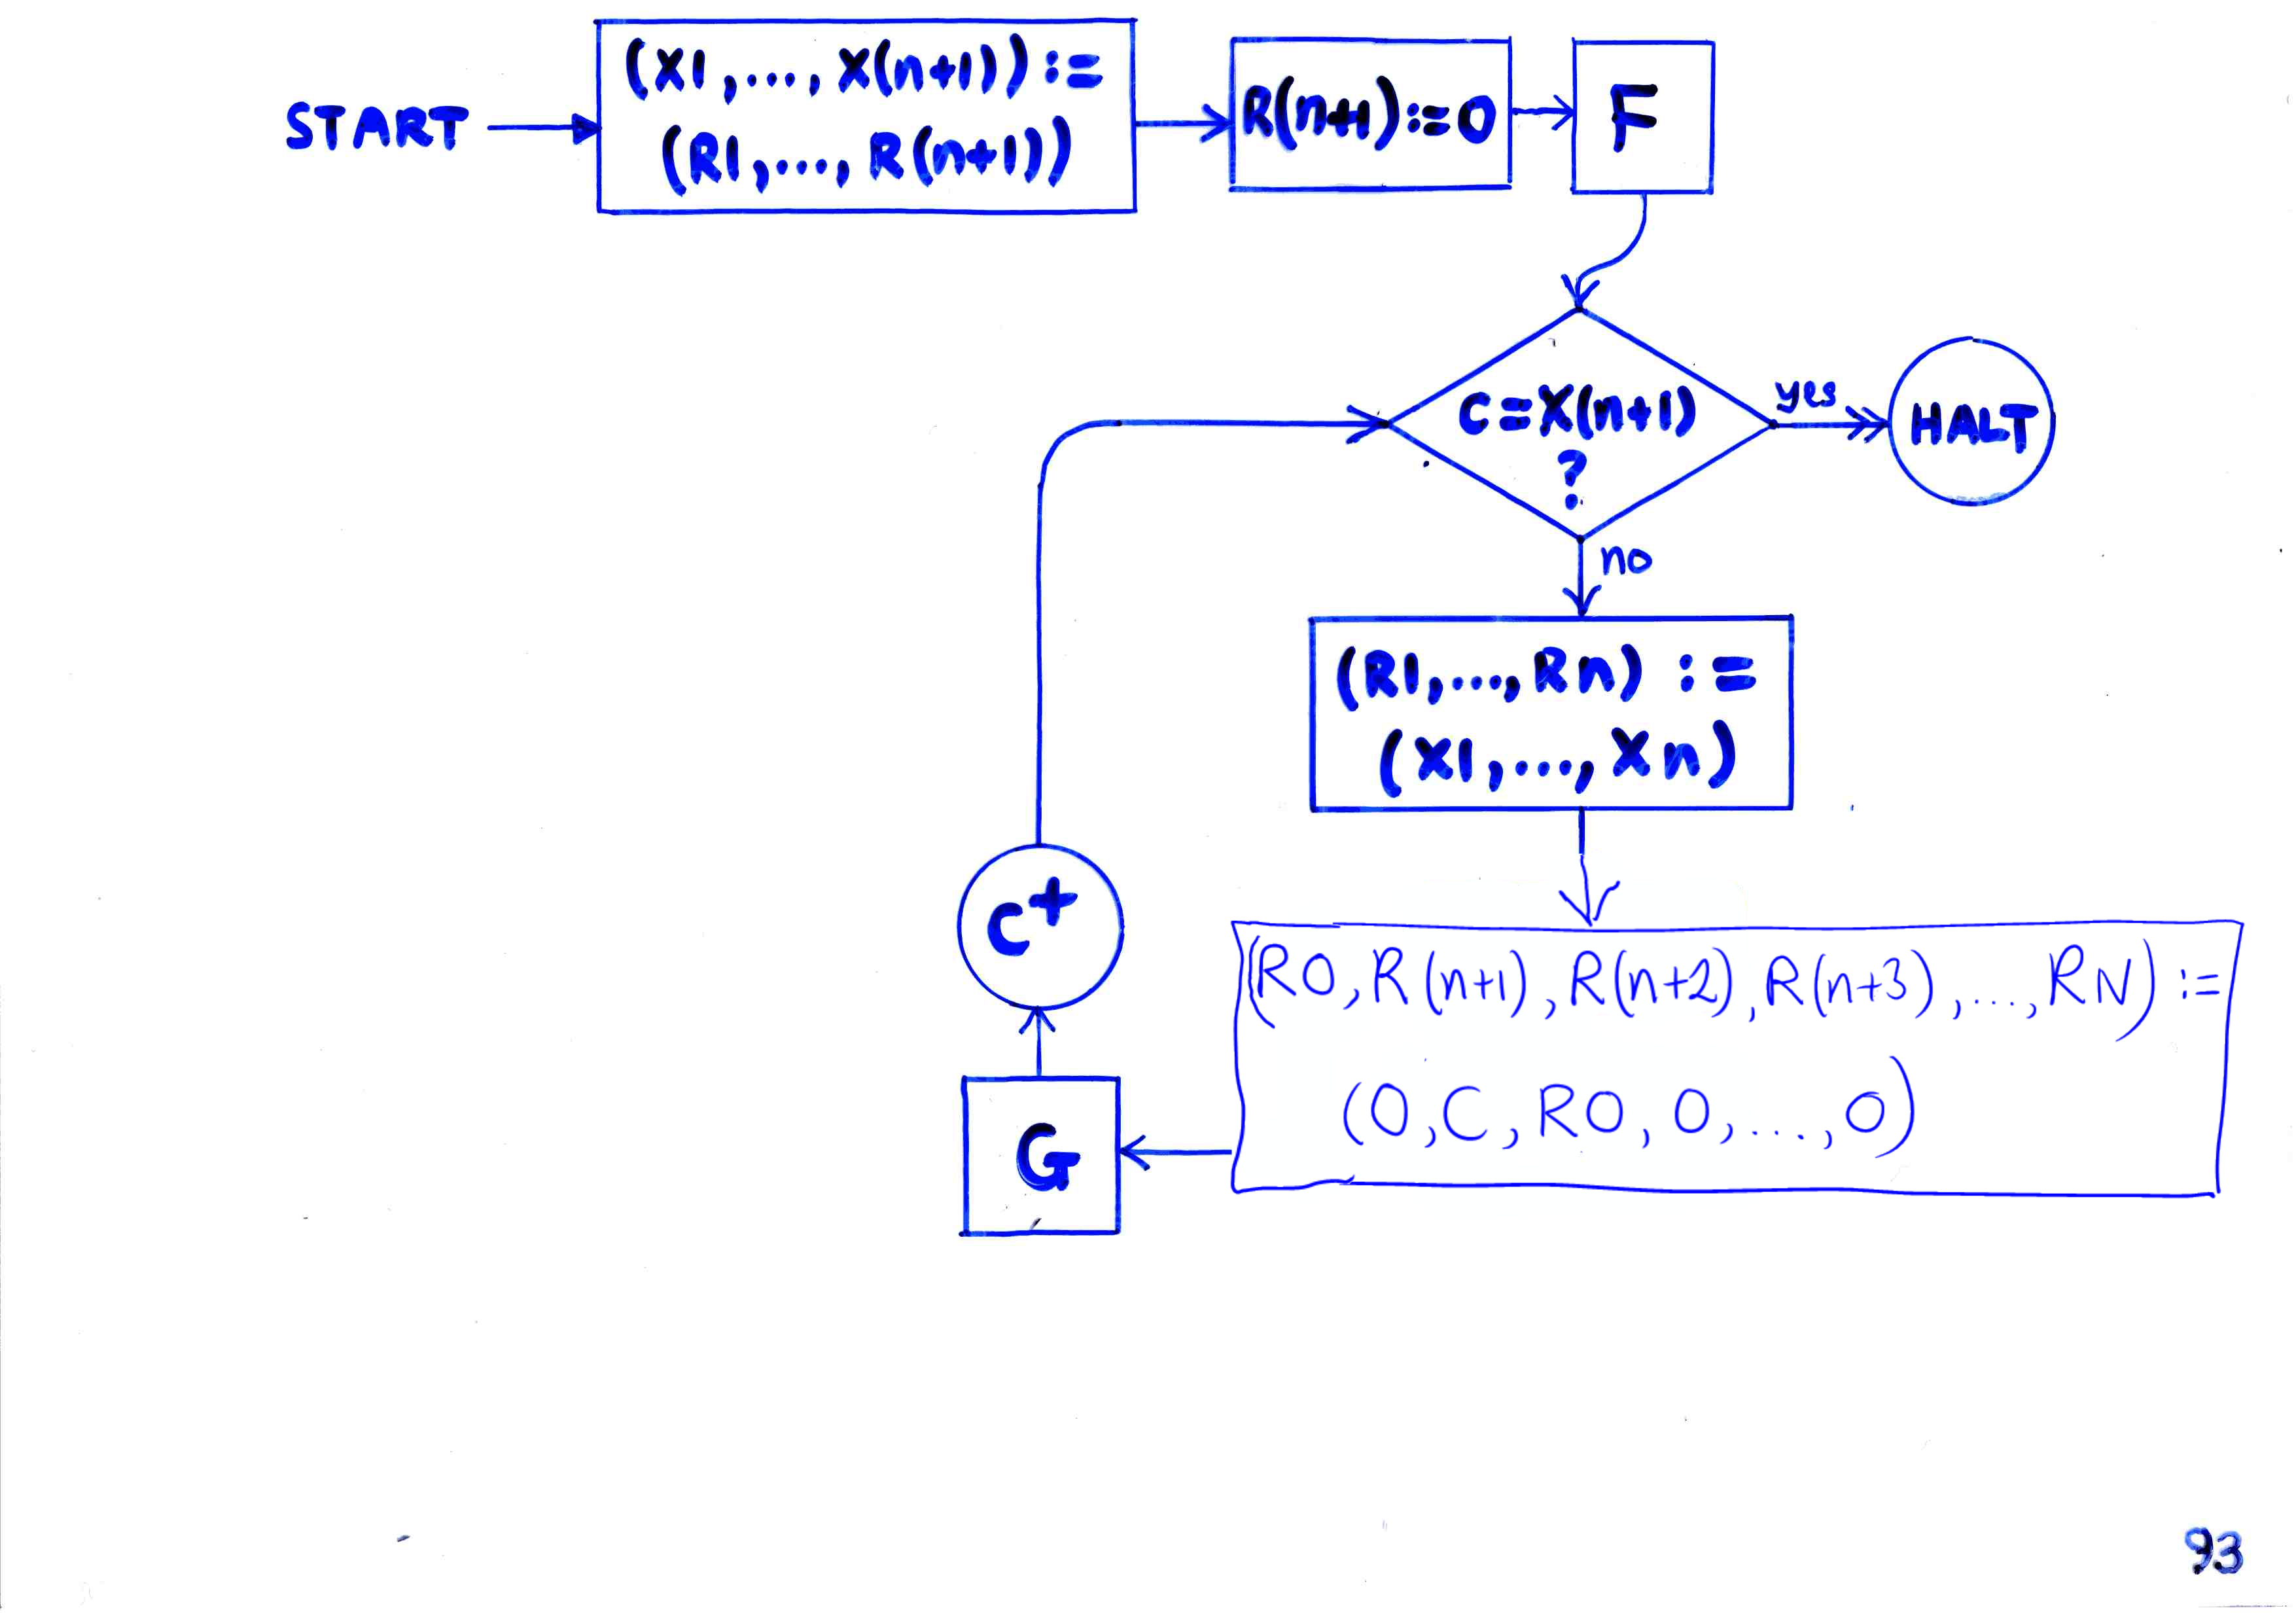 START
(X1,...., X(n+1)) :=
(R1,...., R(n+1))
R(n+1):=0
F
C=X(n+1)
?
yes
HALT
no
(R1,...,Rn) :=
(X1,...,Xn)
(R0,R(n+1),R(n+2),R(n+3),...,RN) :=
(0,C,R0,0,...,0)
G
C⁺
93